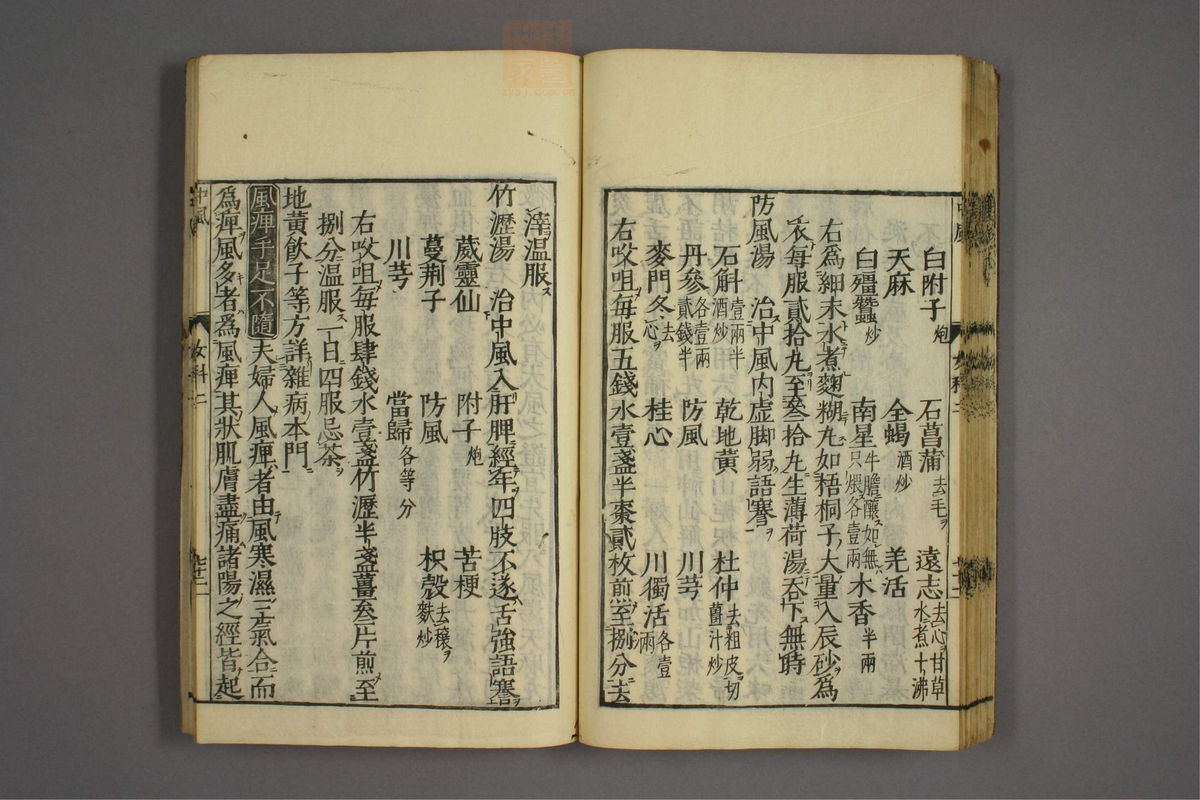 白附子炮 石菖蒲去毛ヲ 遠志去心ヲ甘草水煮十沸
天麻 全蝎酒炒 羌活
白殭蠶炒 南星牛膽釀ス如無ハ只煨各壹兩 木香半兩
右為細末水煮麪糊丸如梧桐子大量入辰砂為
衣每服貳拾丸至叄拾丸生薄荷湯吞下無時
防風湯 治中風内虚脚弱語謇
石斛壹兩半酒炒 乾地黃 杜仲去粗皮切薑汁炒
丹參各壹兩貳錢半 防風 川芎
麥門冬去心ヲ 桂心 川獨活各壹兩
右㕮咀每服五錢水壹盞半棗貳枚煎至捌分去
滓温服ス
竹瀝湯 治中風入肝脾經年四肢不遂舌強語謇
葳靈仙 附子炮 苦梗
蔓荆子 防風 枳殼去穣ヲ麩炒
川芎 當歸各等分
右㕮咀每服肆錢水壹盞竹瀝半盞薑叄片煎至
捌分温服一日四服忌茶ヲ
地黃飲子等方詳雜病本門
風痺手足不隨 夫婦人風痺者由風寒濕三氣合而
為痺風多者為風痺其狀肌膚盡痛諸陽之經皆起
中風
女科二